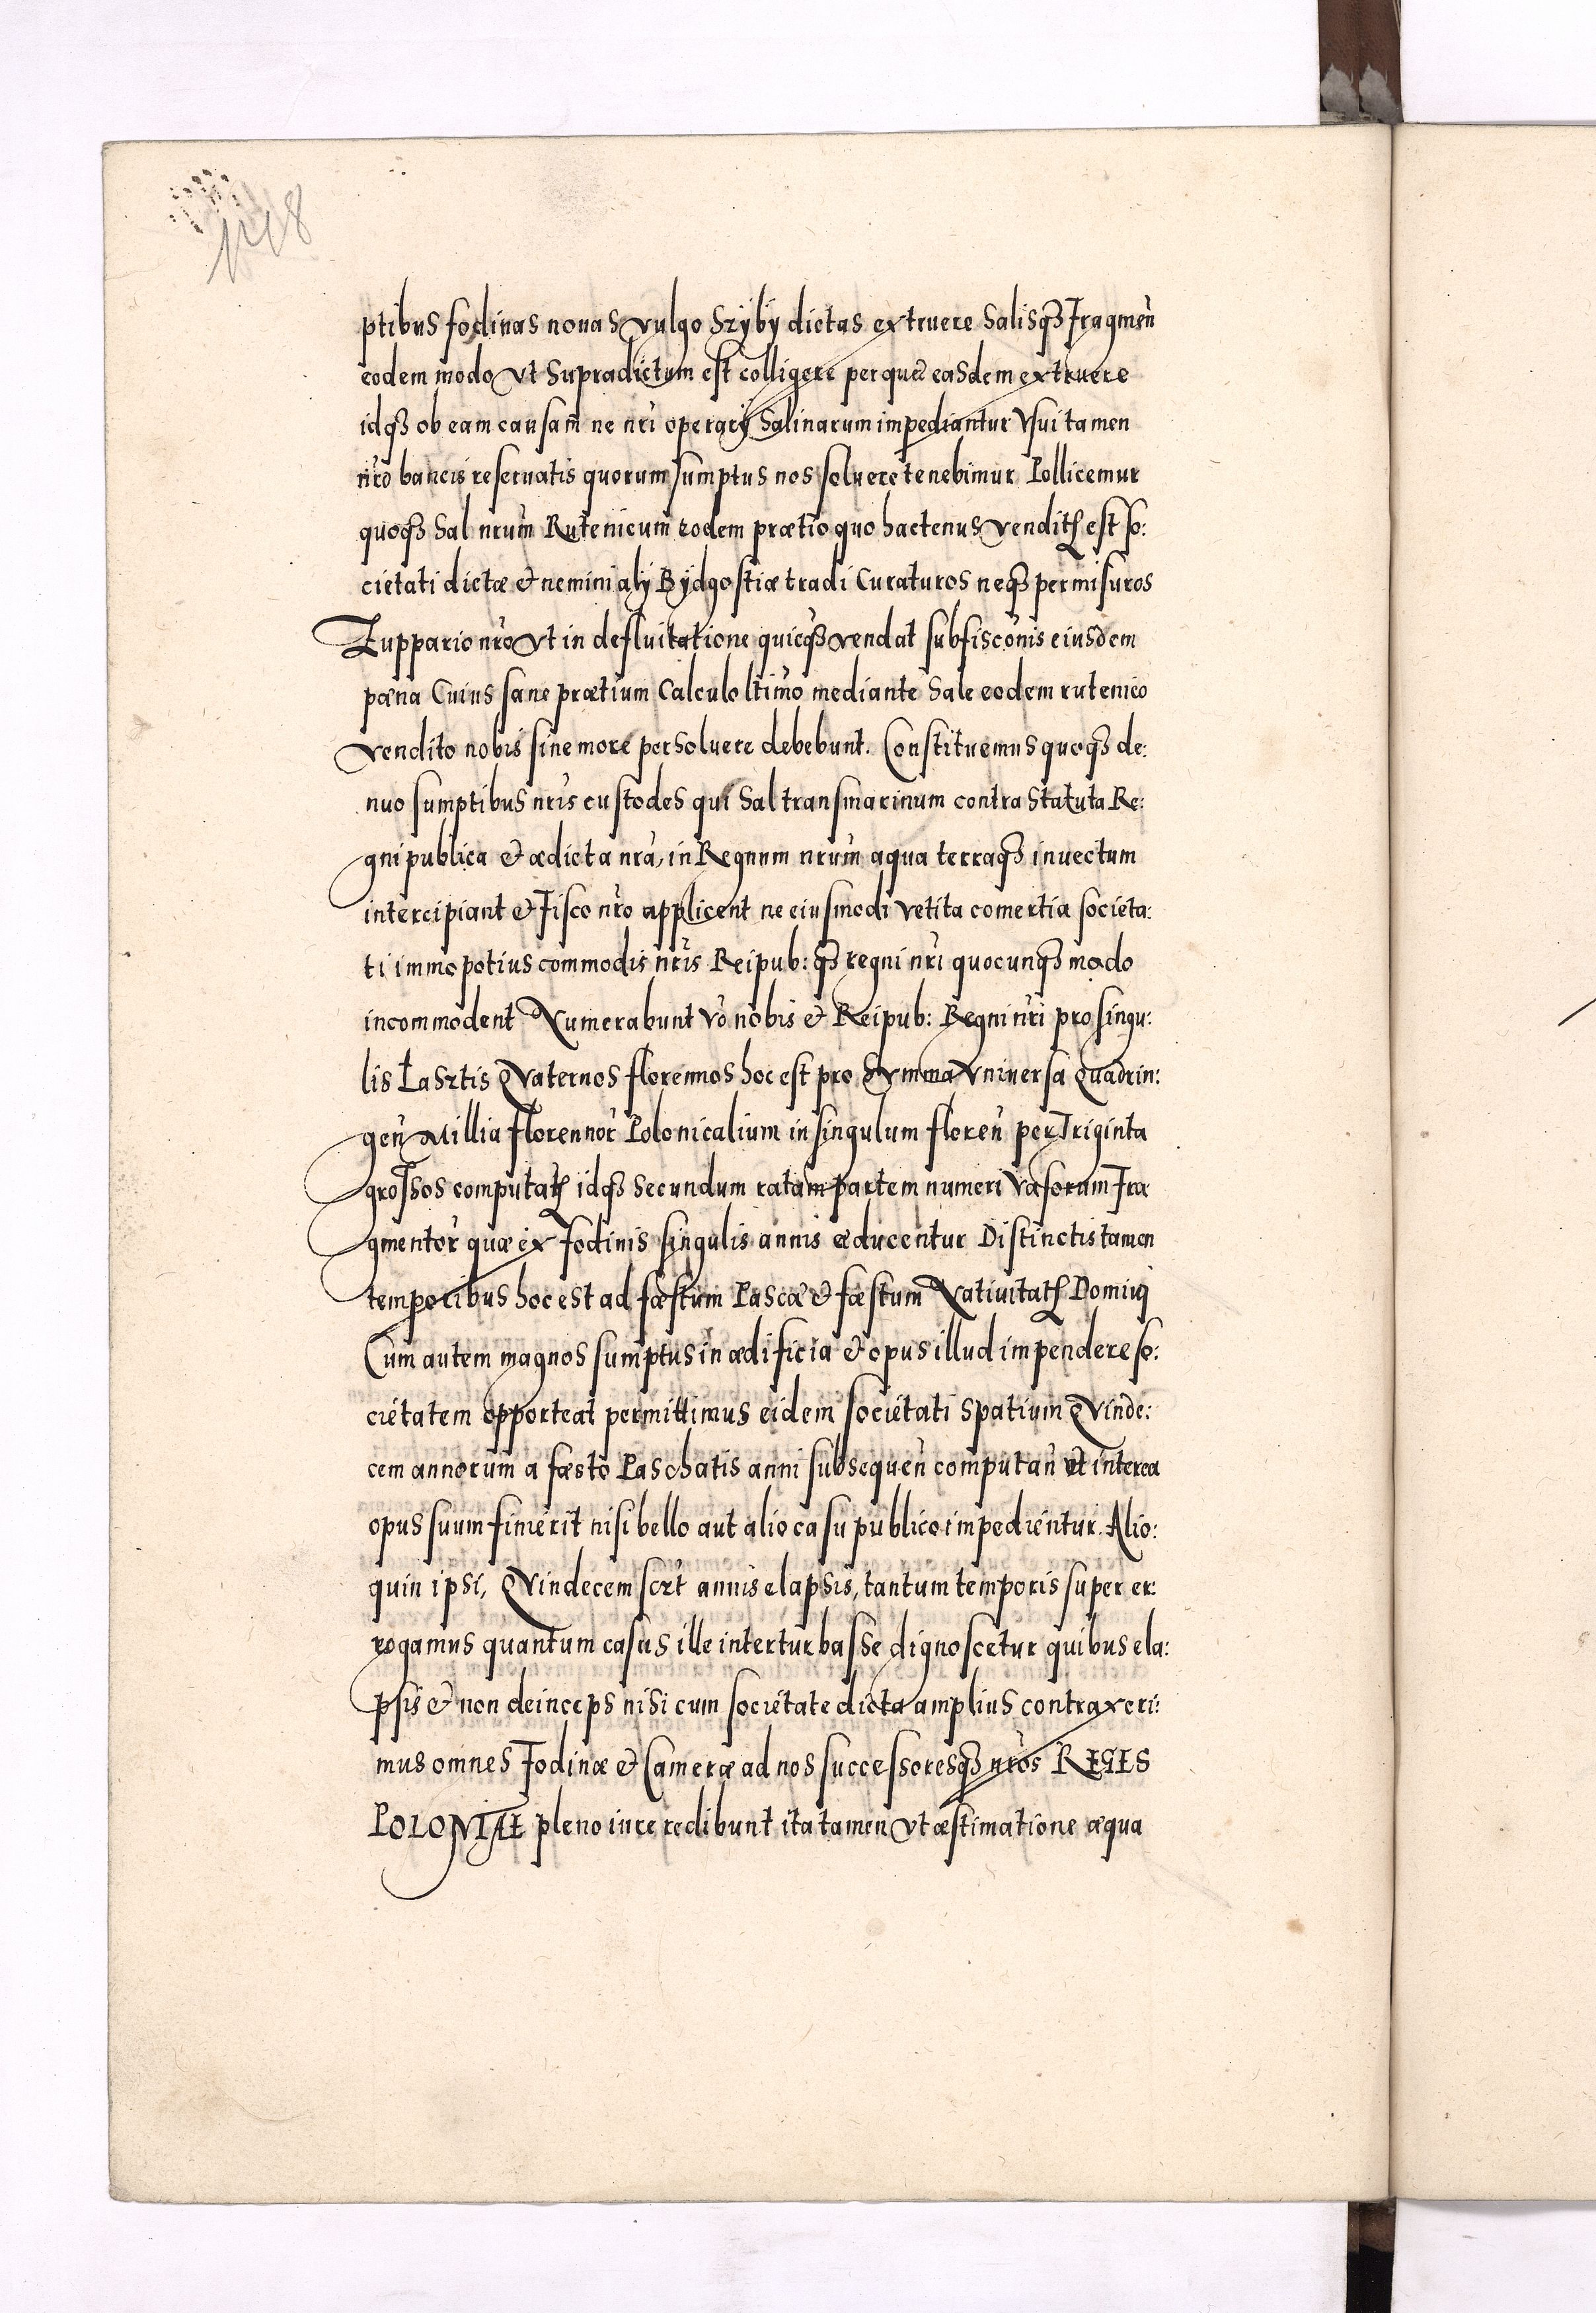 ptibus fodinas nouas vulgo Szyby dictas extruere Salisqʒ Fragmen̄
eodem modo vt Supradictum est colligere perque easdem extruere
idqʒ ob eam causam̄ ne nr̄i operarij Salinarum impediantur Vsui tamen
nr̄o bancis reseruatis quorum sumptus nos soluere tenebimur Pollicemur
quoqʒ Sal nr̄um Rutenicum eodem prætio quo hactenus venditꝭ est so:
cietati dictæ & nemini alij Bydgostiæ tradi Curaturos neqʒ permisuros
Zuppario nr̄o vt in defluitatione quicqʒ vendat sub fisco̅nis eiusdem
pæna Cuius sane prætium Calculo ltim̄o mediante Sale eodem rutenico
vendito nobis sine more persoluere debebunt. Constituemus quoqʒ de:
nuo sumptibus nr̄is custodes qui Sal transmarinum contra Statuta Re:
gni publica & ædicta nr̄a, in Regnum nr̄um aqua terraqʒ inuectum
intercipiant & Fisco nr̄o applicent ne eiusmodi vetita comertia societa:
ti immo potius commodis nr̄is Reipub: qʒ regni nr̄i quocunqʒ modo
incommodent Numerabunt vō nobis & Reipub: Regni nr̄i pro singu:
lis Lasztis Quaternos florennos hoc est pro Summa vniuersa Quadrin:
gen̄ Millia florennor̄ Polonicalium in singulum floren̄ per Triginta
grossos computatꝭ idqʒ Secundum ratam partem numeri Vasorum Fra
gmentor̄ quæ ex Fodinis singulis annis æducentur Distinctis tamen
temporibus hoc est ad fæstum Pascæ & fæstum Natiuitatꝭ Domini
Cum autem magnos sumptus in ædificia & opus illud impendere so:
cietatem opporteat permittimus eidem societati Spatium Quinde:
cem annorum a fæsto Paschatis anni subsequen̄ computan̄ vt interea
opus suum finierit nisi bello aut alio casu publico impedientur. Alio:
quin ipsi, Quindecem sczt annis elapsis, tantum temporis super er:
rogamus quantum casus ille interturbasse dignoscetur quibus ela:
psis & non deinceps nisi cum societate dicta amplius contraxeri:
mus omnes Fodinæ & Cameræ ad nos successoresqʒ nr̄os REGES
POLONIAE pleno iure redibunt ita tamen vt æstimatione æqua